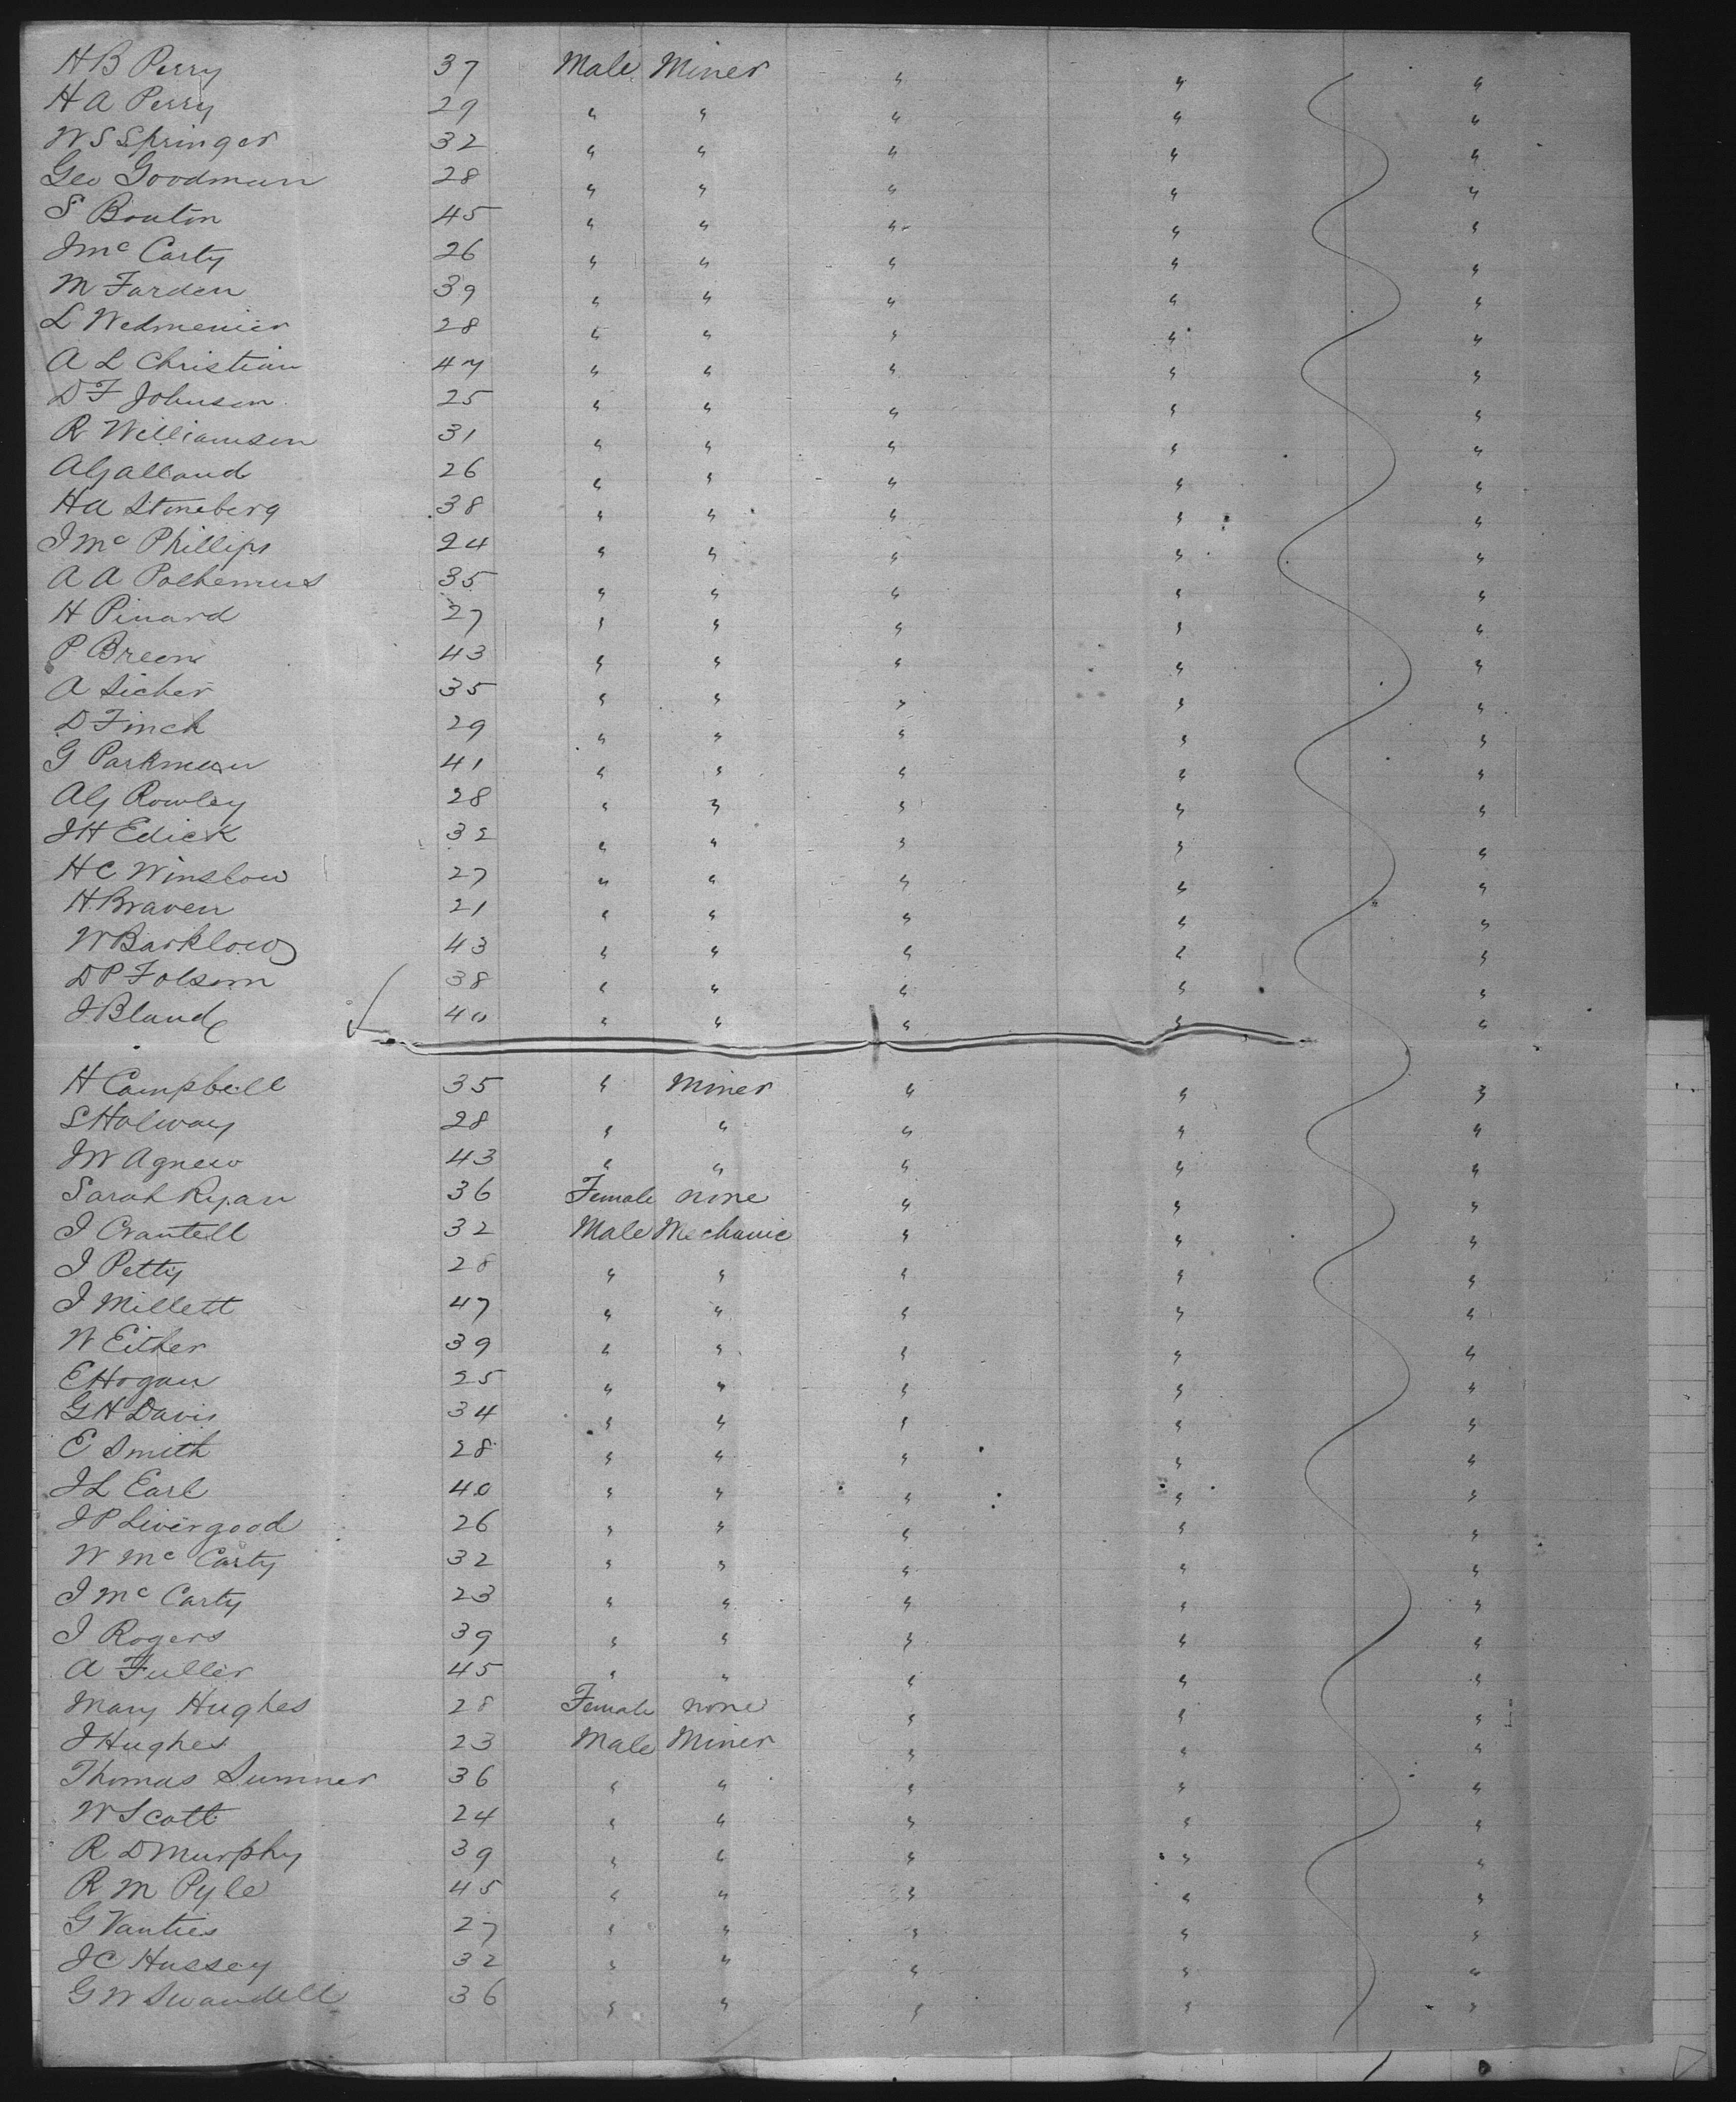 H B Perry 37 Male Miner " " "
H A Perry 29 " " " " "
W S Springer 32 " " " " "
Geo Goodman 28 " " " " "
S Bouton 45 " " " " "
J Mc Carty 26 " " " " "
M Farden 39 " " " " "
L Wedmenier 28 " " " " "
A L Christian 47 " " " " "
D F Johnson 25 " " " " "
R Williamson 31 " " " " "
A Galland 26 " " " " "
H A Stoneberg 38 " " " " "
J Mc Phillips 24 " " " " "
A A Polhemus 35 " " " " "
H Pinard 27 " " " " "
P Breen 43 " " " " "
A Sicher 35 " " " " "
D Finch 29 " " " " "
G Parkman 41 " " " " "
A G Rowley 28 " " " " "
J H Edick 32 " " " " "
H C Winslow 27 " " " " "
H Braven 21 " " " " "
W Barklow 43 " " " " "
D P Folsom 38 " " " " "
J Bland 40 " " " " "
H Campbell 35 " Miner " " "
S Holway 28 " " " " "
J W Agnew 43 " " " " "
Sarah Ryan 36 Female none " " "
J Crantell 32 Male Mechanic " " "
J Petty 28 " " " " "
J Millett 47 " " " " "
W Either 39 " " " " "
E Hogan 25 " " " " "
G H Davis 34 " " " " "
E Smith 28 " " " " "
J L Earl 40 " " " " "
J P Livergood 26 " " " " "
W Mc Carty 32 " " " " "
J Mc Carty 23 " " " " "
J Rogers 39 " " " " "
A Fuller 45 " " " " "
Mary Hughes 28 Female none " " "
J Hughes 23 Male Miner " " "
Thomas Sumner 36 " " " " "
W Scott 24 " " " " "
R D Murphy 39 " " " " "
R M Pyle 45 " " " " "
G Vanties 27 " " " " "
J C Hussey 32 " " " " "
G W Swandell 36 " " " " "